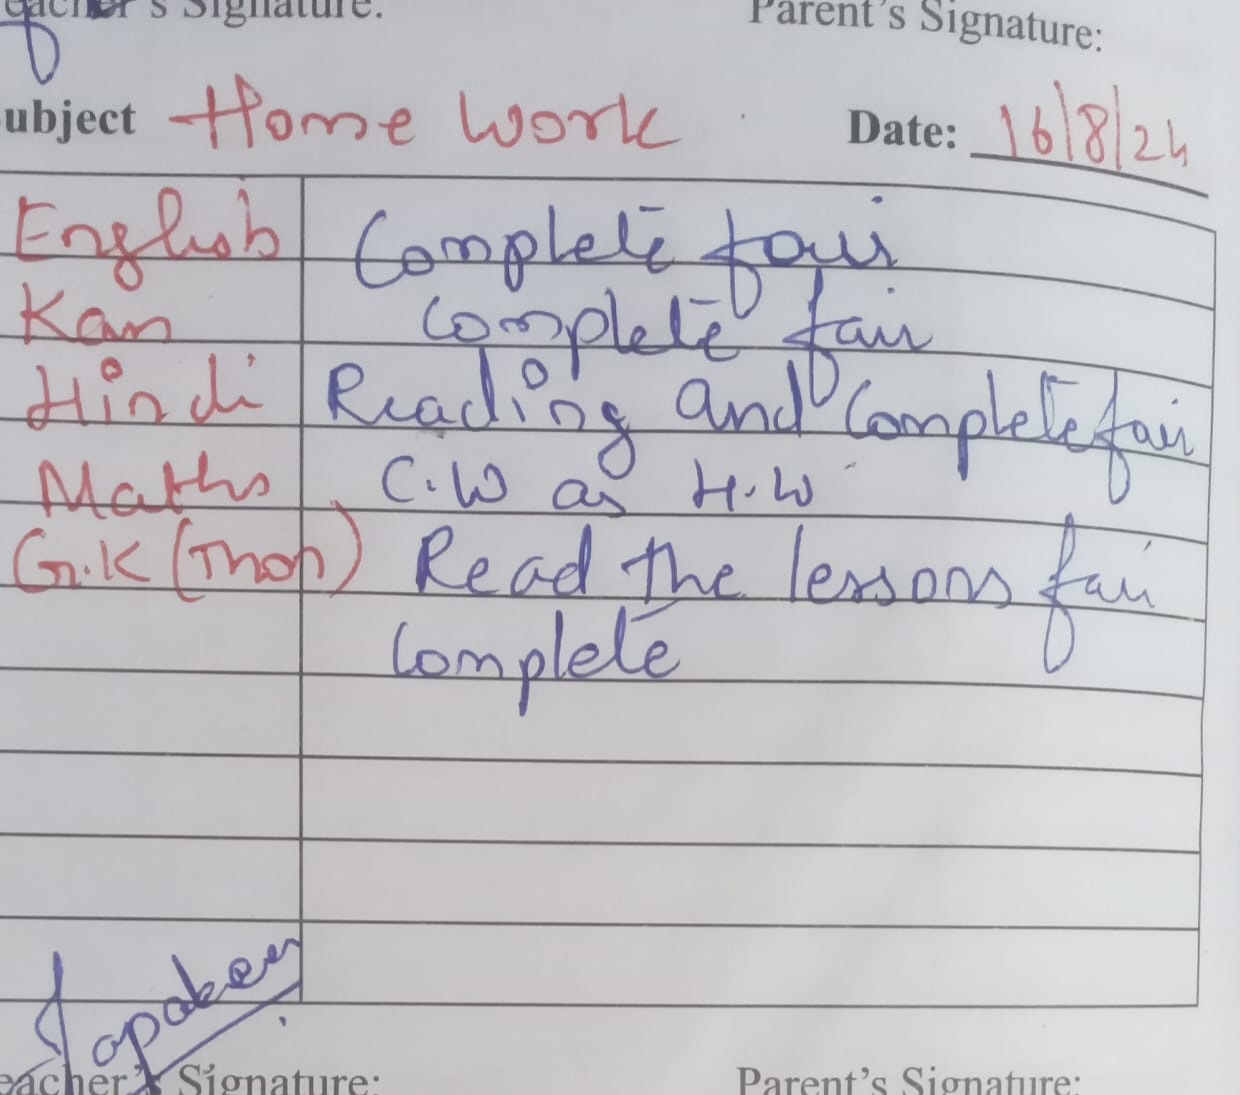 eacher's Signature:
Parent's Signature:
ubject Home Work Date: 16/8/24
English Complete fair
Kan complete fair
Hindi Reading and Complete fair
Maths C.W as H.W
G.K (Thon) Read the lessons fair
Complete
eacher's Signature:
Parent's Signature: